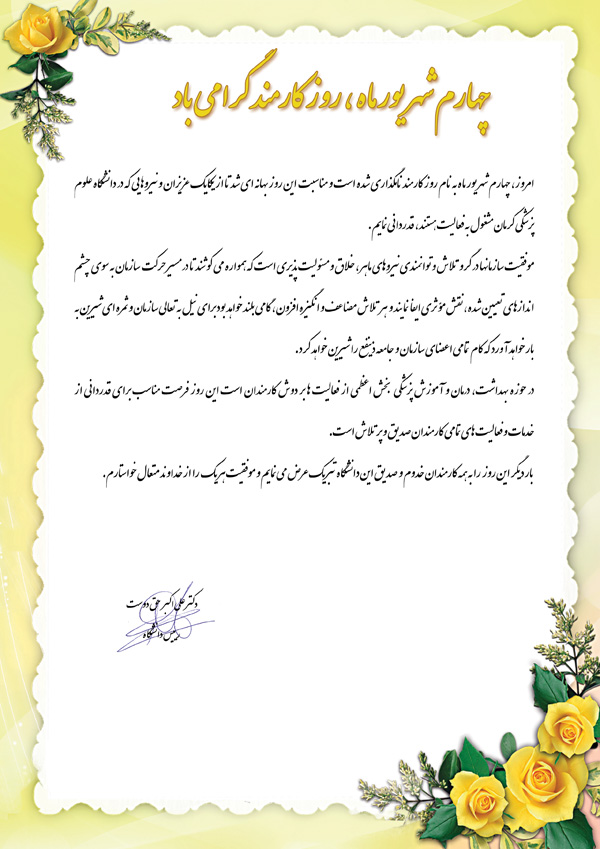 چهارم شهریور ماه ، روز کارمند گرامی باد
امروز، چهارم شهریور ماه به نام روز کارمند نامگذاری شده است و مناسبت این روز بهانه ای شد تا از یکایک عزیزان و نیروهایی که در دانشگاه علوم
پزشکی کرمان مشغول به فعالیت هستند، قدردانی نمایم.
موفقیت سازمانها در گرو تلاش و توانمندی نیروهای ماهر، خلاق و مسئولیت پذیری است که همواره می کوشند تا در مسیر حرکت سازمان به سوی چشم
اندازهای تعیین شده، نقش مؤثری ایفا نمایند و هر تلاش مضاعف و انگیزه افزون، گامی بلند خواهد بود برای نیل به تعالی سازمان و ثمره ای شیرین به
بار خواهد آورد که کام تمامی اعضای سازمان و جامعه ذینفع را شیرین خواهد کرد.
در حوزه بهداشت، درمان و آموزش پزشکی بخش اعظمی از فعالیت ها بر دوش کارمندان است این روز فرصت مناسب برای قدردانی از
خدمات و فعالیت های تمامی کارمندان صدیق و پر تلاش است.
بار دیگر این روز را به همه کارمندان خدوم و صدیق این دانشگاه تبریک عرض می نمایم و موفقیت هریک را از خداوند متعال خواستارم.
دکتر علی اکبر حق دوست
رییس دانشگاه